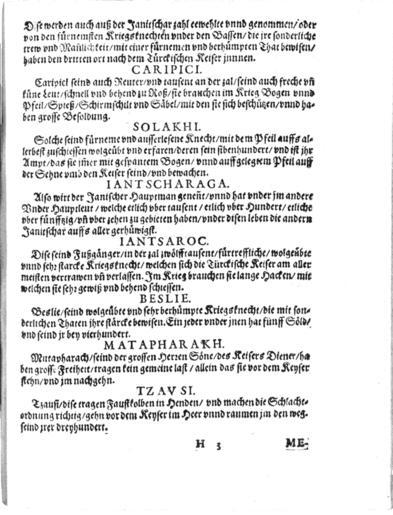 Dise werden auch auß der Janitschar zahl erwehlet vnnd genommen/oder
von den fürnemsten Kriegsknechten vnder den Bassen/ die jre sonderliche
trew vnd Mañlichkeit/mit einer fürnemen vnd berhümpten That bewisen/
haben den dritten ort nach dem Türckischen Keiser jnnnen.
CARIPICI.
Caripici seind auch Reuter/vnd tausent an der zal/seind auch freche vñ
küne Leut/schnell vnd behend zu Roß/sie brauchen im Krieg Bogen vnnd
Pfeil/Spieß/Schirmschilt vnd Säbel/mit den sie sich beschützen/vnnd ha-
ben grosse Besoldung.
SOLAKHI.
Solche seind fürneme vnd ausserlesene Knecht/mit dem Pfeil auffs al-
lerbest zuschiessen wolgeübt vnd erfaren/deren sein sibenhundert/vnd ist jhr
Ampt/das sie jmer mit gespantem Bogen/vnnd auffgelegtem Pfeil auff
der Sehne vmb den Keiser seind/vnd bewachen.
IANTSCHARAGA.
Also wirt der Janischer Hauptman genent/vnnd hat vnder jm andere
Vnder Hauptleut/welche etlich vber tausent/etlich vber Hundert/etliche
vber fünfftzig/vñ vber zehen zu gebieten haben/vnder disen leben die andern
Janitschar auffs aller gerhüwigst.
IANTSAROC.
Dise seind Fußgänger/in der zal zwölfftausent/fürtreffliche/wolgeübte
vnnd sehr starcke Kriegsknecht/welchen sich die Türckische Keiser am aller
meisten vertrawen vñ verlassen. Im Krieg brauchen sie lange Hacken/mit
welchen sie sehr gewiß vnd behend schiessen.
BESLIE.
Beslie/seind wolgeübte vnd sehr berhümpte Kriegsknecht/die mit son-
derlichen Thaten jhre stärcke bewisen. Ein jeder vnder jnen hat fünff Söld/
vnd seind jr bey vierhundert.
MATAPHARAKH.
Mutapharach/seind der grossen Herren Söne/des Keisers Diener/ha
ben gross: Freiheit/tragen kein gemeine last/allein das sie vor dem Keyser
stehn/vnd jm nachgehn.
TZAVSI.
Tzausi/dise tragen Faustkolben in Henden/vnd machen die Schlacht-
ordnung richtig/gehn vor dem Keyser im Heer vnnd raumen jm den weg.
seind jrer dreyhundert.
H 3 ME-